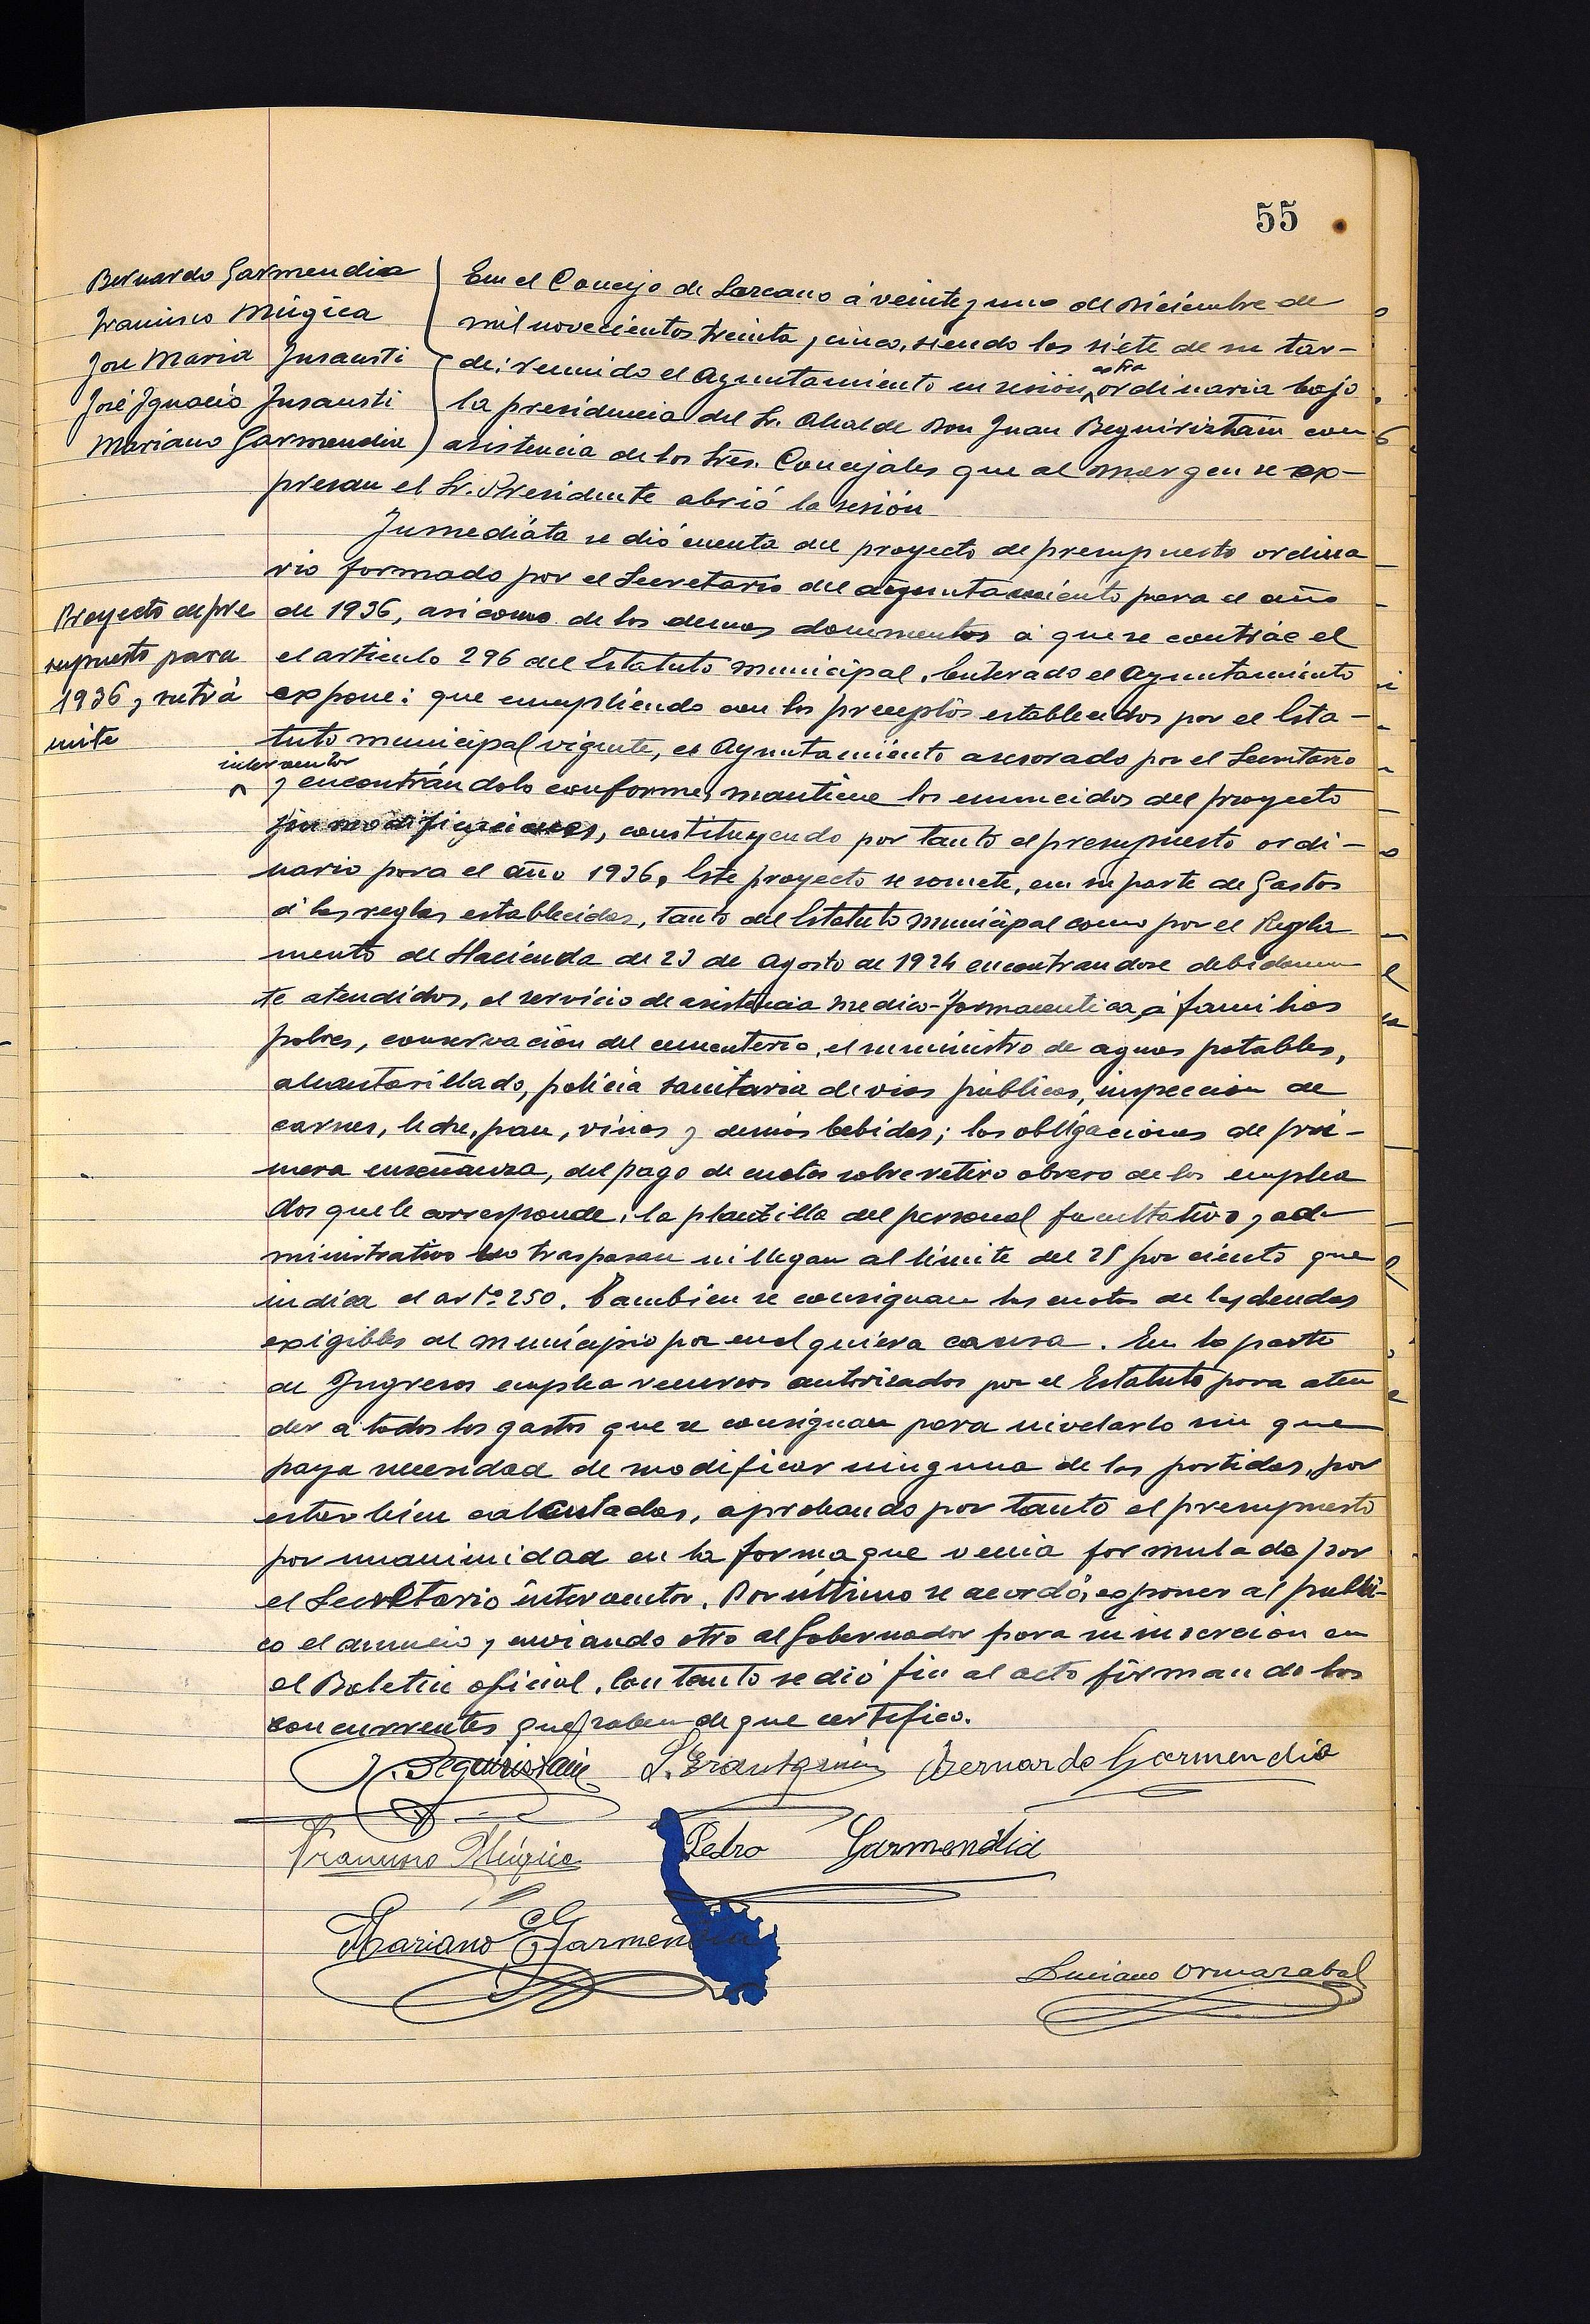 55
Bernardo Garmendia
Francisco Múgica
José Maria Insausti
José Ignacio Insausti
Mariano Garmendia
En el Concejo de Lazcano á veinte y uno de Diciembre de
mil novecientos treinta y cinco, siendo las siete de su tar-
de: reunido el Ayuntamiento en sesión extra ordinaria bajo
la presidencia del Sr. Alcalde Don Juan Beguiristain con
asistencia de los Sres. Concejales que al margen se ex-
presan el Sr. Presidente abrió la sesión
Proyecto de pre
supuesto para
1936 y su trá
mite
Inmediáta se dió cuenta del proyecto de presupuesto ordina
rio formado por el Secretario del ayuntamiento para el año
de 1936, asi como de los demas documentos á que se contráe el
el articulo 296 del Estatuto municipal. Enterado el Ayuntamiento
expone: que cumpliendo con los preceptos establecidos por el Esta-
tuto municipal vigente, el Ayuntamiento asesorado por el Secretario
interventor y encontrándolo conforme, mantiene los enuncidos del proyecto
sin modificaciones, constituyendo por tanto el presupuesto ordi-
nario para el año 1936. Este proyecto se somete, en su parte de Gastos
á las reglas establecidas, tanto del Estatuto municipal como por el Regla
mento de Hacienda de 23 de Agosto de 1924 encontrandose debidamen
te atendidos, el servicio de asistencia medico-farmaceutica á familias
pobres, conservación del cementerio, el suministro de aguas potables,
alcantarillado, policia sanitaria de vias públicas, inspeccion de
carnes, leche, pan, vinos y demás bebidas; las obligaciones de pri-
mera enseñanza, del pago de cuotas sobre retiro obrero de los emplea
dos que le corresponde; la plantilla del personal facultativo y ad-
ministrativo no traspasan ni llegan al limite del 25 por ciento que
indica el artº 250. Tambien se consignan las cuotas de las deudas
exigibles al municipio por cualquiera causa. En la parte
de Ingresos emplea recursos autorizados por el Estatuto para aten
der á todos los gastos que se consignan para nivelarlo sin que
haya necesidad de modificar ninguna de las partidas, por
estar bien calculadas, aprobando por tanto el presupuesto
por unanimidad en la forma que venia formulada por
el Secretario interventor. Por último se acordó, exponer al públi-
co el anuncio y enviando otro al Gobernador para su insercion en
el Boletin oficial. Con tanto se dió fin al acto firmando los
concurrentes que saben de que certifico.
J. Beguiristain
Bernardo Garmendia
Francisco Múgica
Pedro Garmendia
Mariano Garmendia
Luciano Ormazabal